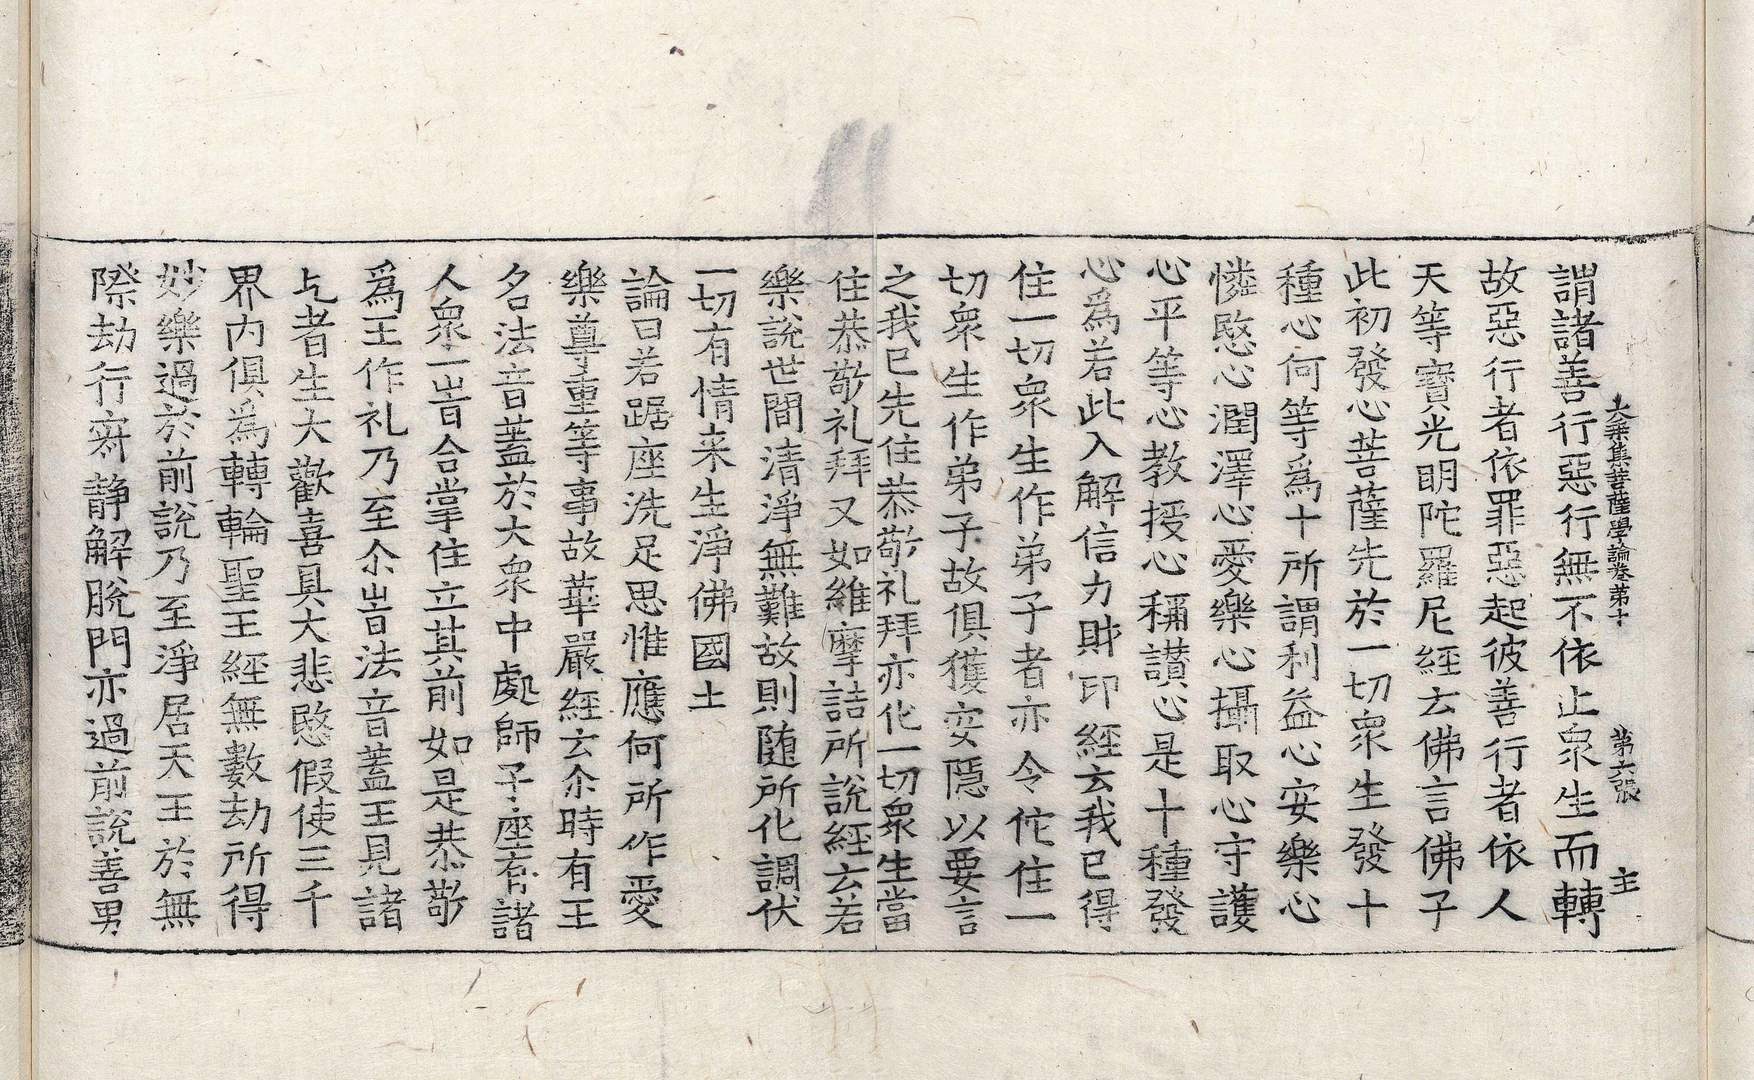 大乘集菩薩學論卷第十　第六張　主
謂諸善行惡行無不依止衆生而轉
故惡行者依罪惡起彼善行者依人
天等寶光明陀羅尼經云佛言佛子
此初發心菩薩先於一切衆生發十
種心何等爲十所謂利益心安樂心
憐愍心潤澤心愛樂心攝取心守護
心平等心教授心稱讃心是十種發
心爲若此入解信力財印經云我已得
住一切衆生作弟子者亦令佗住一
切衆生作弟子故俱獲安隱以要言
之我已先住恭敬礼拜亦化一切衆生當
住恭敬礼拜又如維摩詰所說經云若
樂說世間清淨無難故則随所化調伏
一切有情来生淨佛國土
論曰若踞座洗足思惟應何所作愛
樂尊重等事故華嚴經云尒時有王
名法音蓋於大衆中處師子座有諸
人衆一皆合掌住立其前如是恭敬
爲王作礼乃至尒旹法音蓋王見諸
乞者生大歡喜具大悲愍假使三千
界內俱爲轉輪聖王經無數劫所得
妙樂過於前說乃至淨居天王於無
際劫行寂靜解脫門亦過前說善男